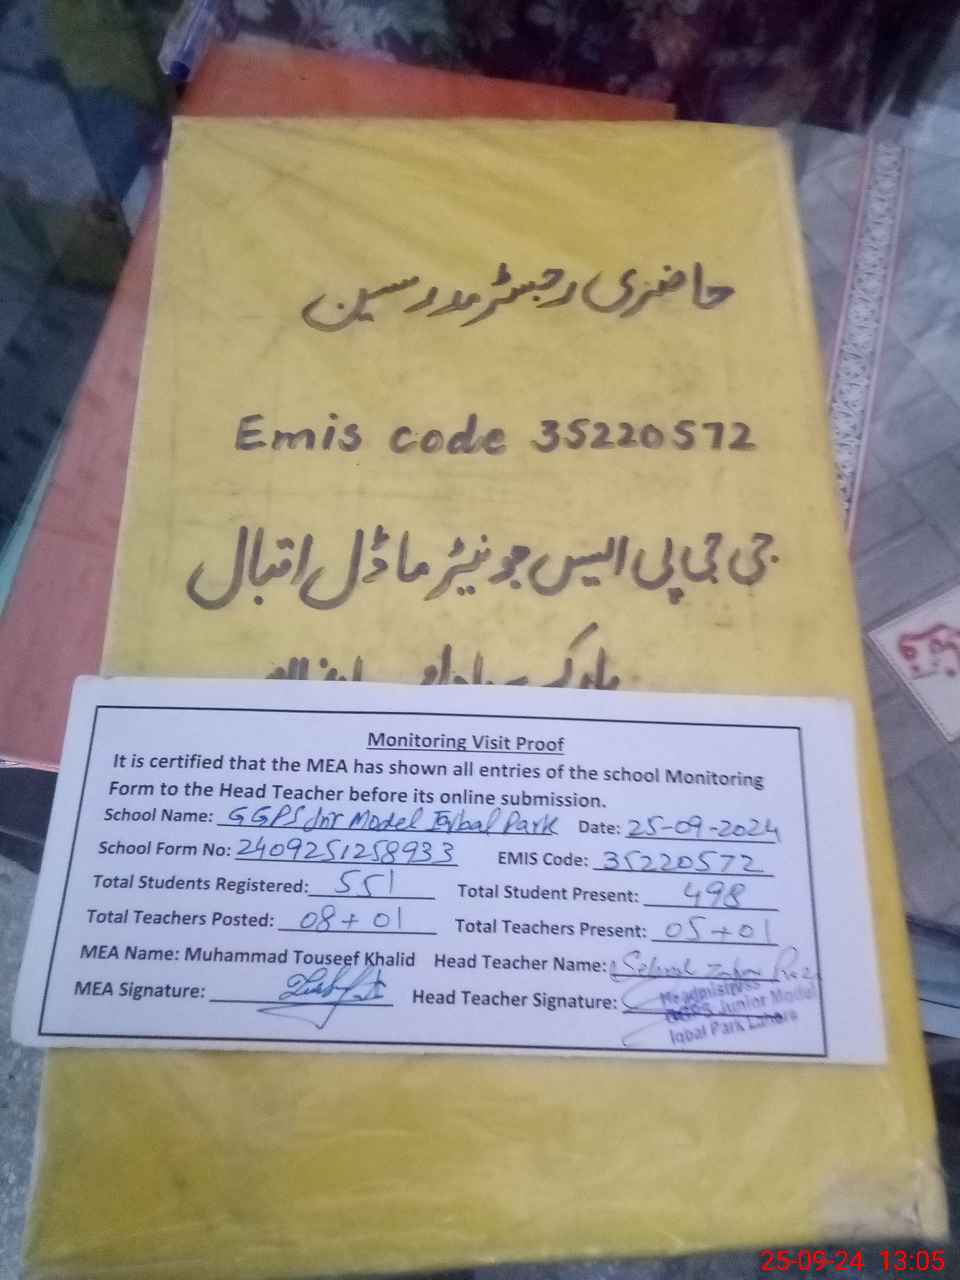 حاضری رجسٹر مدرسین
Emis code 35220572
جی جی پی ایس جونیئر ماڈل اقبال
پارک
Monitoring Visit Proof
It is certified that the MEA has shown all entries of the school Monitoring
Form to the Head Teacher before its online submission.
School Name: GGPS Jnr Model Iqbal Park Date: 25-09-2024
School Form No: 2409251258933 EMIS Code: 35220572
Total Students Registered: 551 Total Student Present: 498
Total Teachers Posted: 08+01 Total Teachers Present: 05+01
MEA Name: Muhammad Touseef Khalid Head Teacher Name:
MEA Signature: Head Teacher Signature:
Headmistress
GGPS Junior Model
Iqbal Park Lahore
25-09-24 13:05